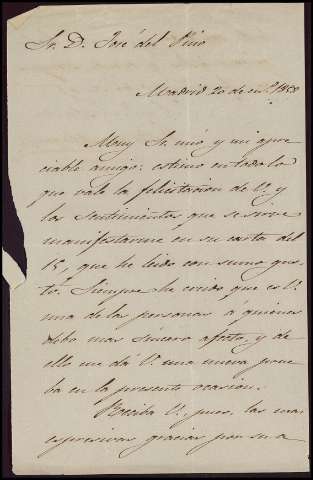 Sr. D. José del Pino
Madrid 20 de en.º 1858
Muy Sr. mio y mi apre
ciable amigo: estimo en todo lo
que vale la felicitacion de V. y
los sentimientos que se sirve
manifestarme en su carta del
15, que he leido con sumo gus
to. Siempre he creido que es V.
una de las personas á quienes
debo mas sincero afecto, y de
ello me dá V. una nueva prue
ba en la presente ocasion.
Reciba V., pues, las mas
espresivas gracias por su a